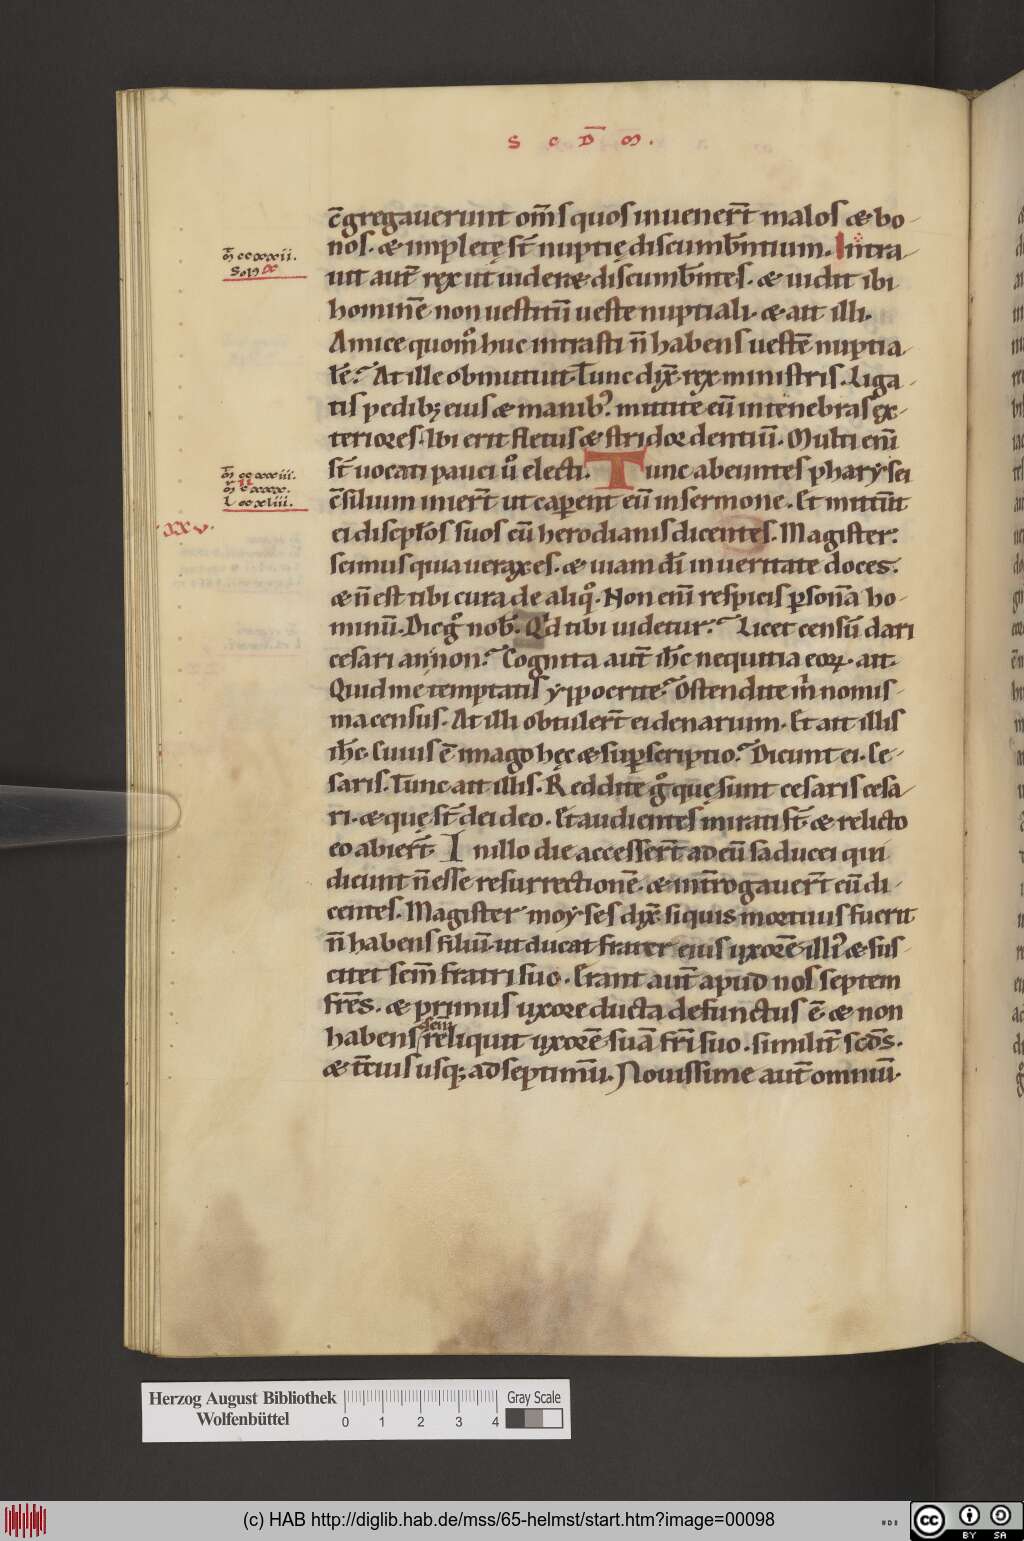 S C D̅ M.
c̅gregauerunt om̅s quos inuener̅t malos & bo-
nos. & implete̜ st̅ nuptie̜ discumb̅ntium. Intra-
m̅ ccxxii.
Sol' x
uit aut̅ rex ut uideret discumb̅ntes. & uidit ibi
homine̅ non uestitu̅ ueste nuptiali. & ait illi.
Amice quomͦ huc intrasti n̅ habens ueste̅ nuptia-
le̅? At ille obmutuit. Tunc dix̅ rex ministris. Liga-
tis pedib; eius & manib⁹. mittite eu̅ in tenebras ex-
teriores. Ibi erit fletus & stridor dentiu̅. Multi eni̅
st̅ uocati pauci uͦ electi. Tunc abeuntes pharysei
m̅ ccxxiii.
m̅ cxxx.
L ccxliii.
c̅silium inier̅t ut caperent eu̅ in sermone. Et mittu̅t
ei discip̅los suos cu̅ herodianis dicentes. Magister:
xxv.
scimus quia uerax es. & uiam di̅ in ueritate doces.
& n̅ est tibi cura de aliqͦ. Non eni̅ respicis p̱sona̅ ho-
minu̅. Dic gͦ nob̅. Qd tibi uidetur? Licet censu̅ dari
cesari an non? Cognita aut̅ ih̅c nequitia eoꝝ. ait.
Quid me temptatis ẏppocrite? Ostendite m̍ nomis-
ma census. At illi obtuler̅t ei denarium. Et ait illis
ih̅c. Cuius e̅ imago he̜c & sup̱scriptio? Dicunt ei. Ce-
saris. Tunc ait illis. Reddite gͦ que̜ sunt cesaris cesa-
ri. & que̜ st̅ dei deo. Et audientes mirati st̅. & relicto
eo abier̅t. In illo die accesser̅t ad eu̅ saducei qui
dicunt n̅ esse resurrectione̅. & int̅rogauer̅t eu̅ di-
centes. Magister moẏses dix̅ siquis mortuus fuerit
n̅ habens filiu̅. ut ducat frater eius uxore̅ illi⁹ & sus-
citet sem̅ fratri suo. Erant aut̅ apud nos septem
fre̅s. & primus uxore ducta defunctus e̅. & non
semͥ
habens reliquit uxore̅ sua̅ fri̅ suo. similit̅ scd̅s.
& t̅cius usq; ad septimu̅. Nouissime aut̅ omniu̅.
Herzog August Bibliothek
Wolfenbüttel
0 1 2 3 4
Gray Scale
(c) HAB http://diglib.hab.de/mss/65-helmst/start.htm?image=00098
cc BY SA